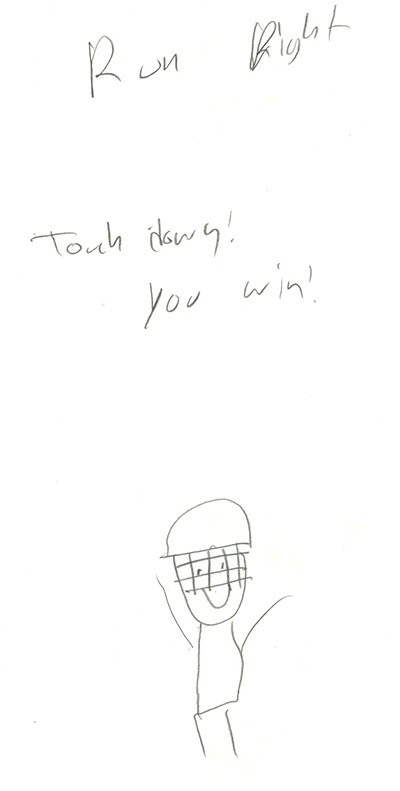 Run Right
Touch down!
you win!